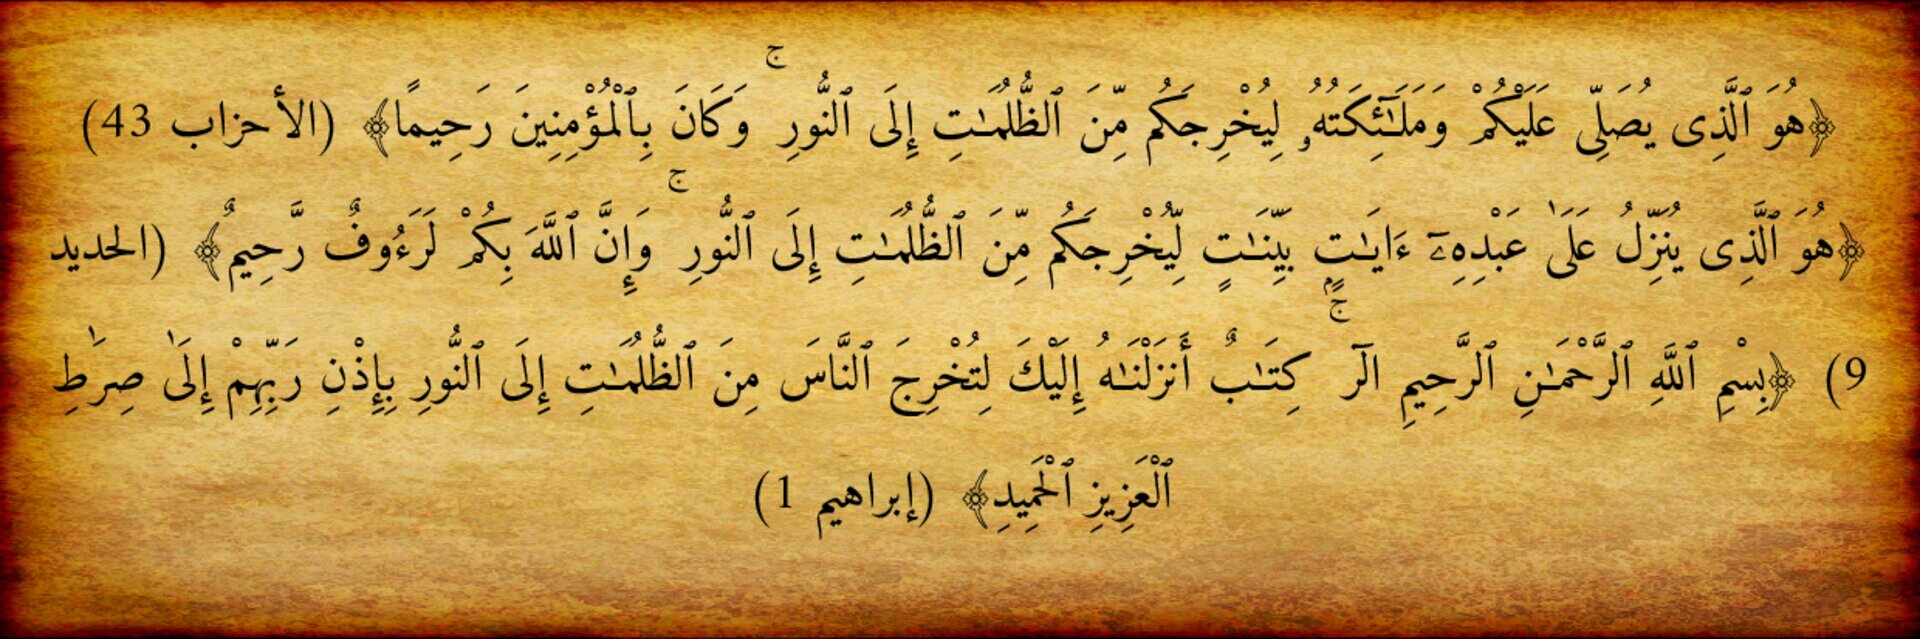 ﴿هُوَ ٱلَّذِى يُصَلِّى عَلَيْكُمْ وَمَلَـٰٓئِكَتُهُۥ لِيُخْرِجَكُم مِّنَ ٱلظُّلُمَـٰتِ إِلَى ٱلنُّورِ ۚ وَكَانَ بِٱلْمُؤْمِنِينَ رَحِيمًا﴾ (الأحزاب 43)
﴿هُوَ ٱلَّذِى يُنَزِّلُ عَلَىٰ عَبْدِهِۦٓ ءَايَـٰتٍۭ بَيِّنَـٰتٍ لِّيُخْرِجَكُم مِّنَ ٱلظُّلُمَـٰتِ إِلَى ٱلنُّورِ ۚ وَإِنَّ ٱللَّهَ بِكُمْ لَرَءُوفٌ رَّحِيمٌ﴾ (الحديد
9) ﴿بِسْمِ ٱللَّهِ ٱلرَّحْمَـٰنِ ٱلرَّحِيمِ الٓر ۚ كِتَـٰبٌ أَنزَلْنَـٰهُ إِلَيْكَ لِتُخْرِجَ ٱلنَّاسَ مِنَ ٱلظُّلُمَـٰتِ إِلَى ٱلنُّورِ بِإِذْنِ رَبِّهِمْ إِلَىٰ صِرَٰطِ
ٱلْعَزِيزِ ٱلْحَمِيدِ﴾ (إبراهيم 1)